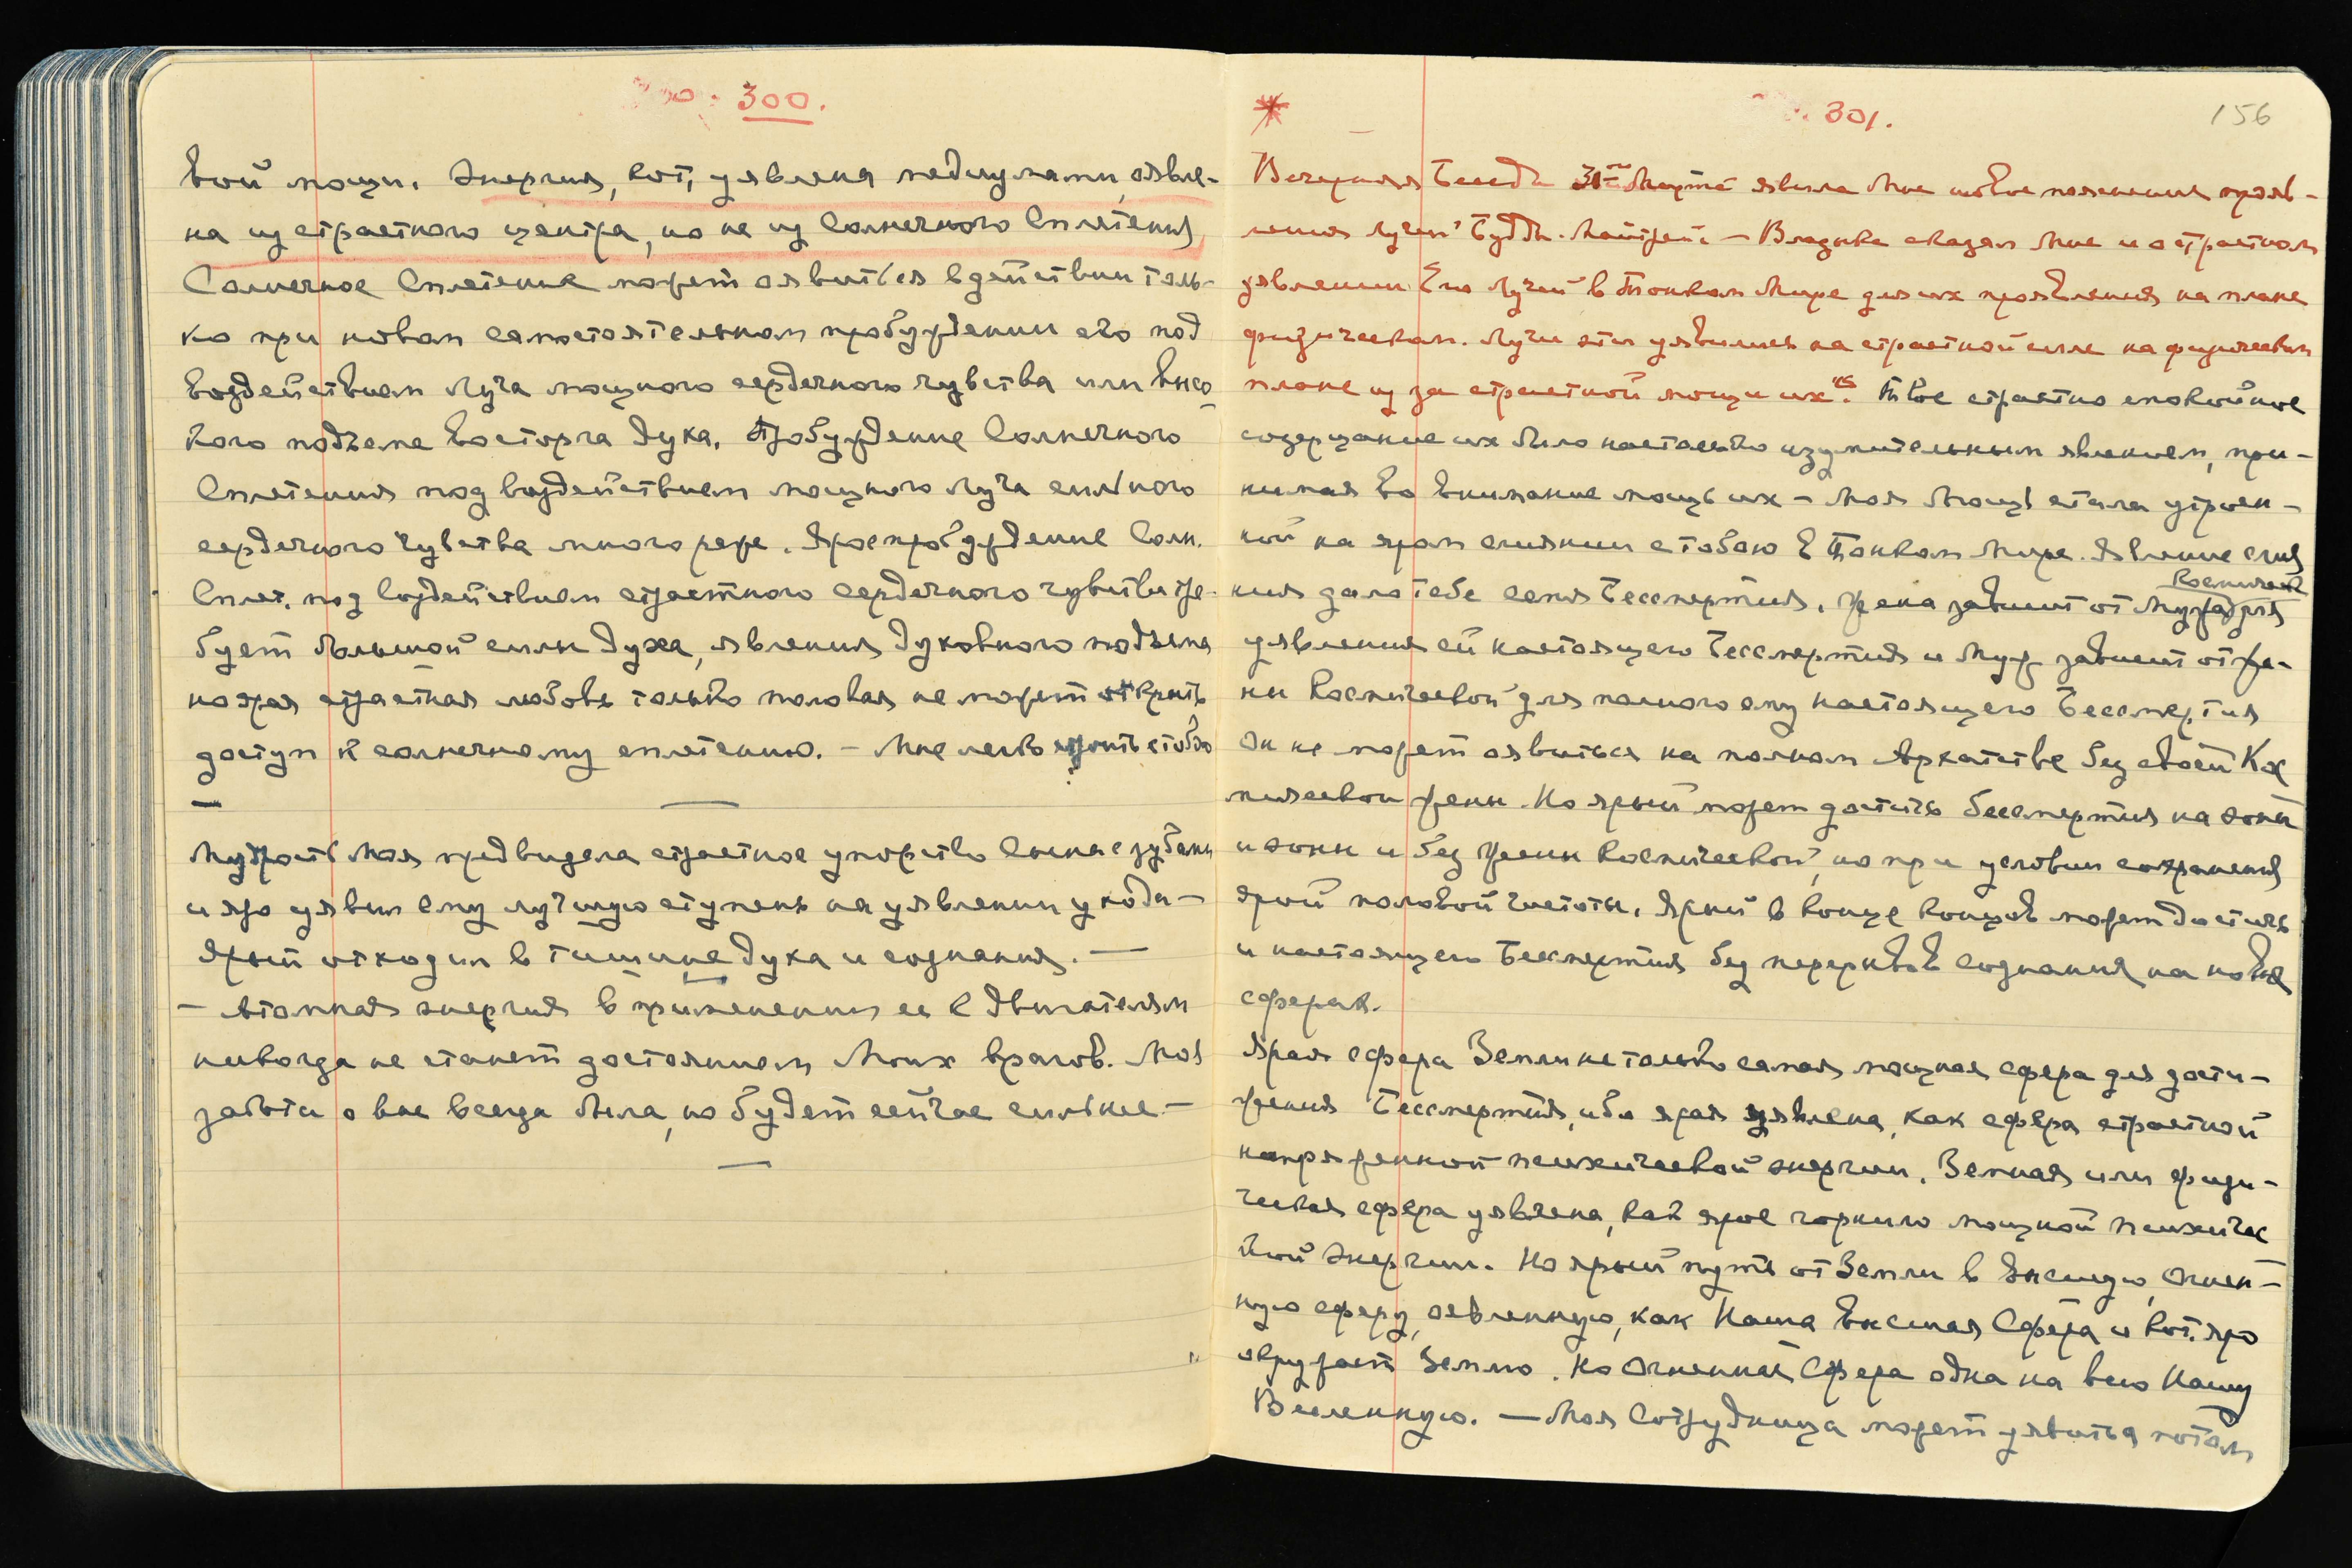 300.
вой мощи. Энергия, кот, уявлена медиумами, оявле-
на из страстного центра, но не из Солнечного Сплетения
Солнечное Сплетение может оявиться в действии толь-
ко при новом самостоятельном пробуждении его под
воздействием Луча мощного сердечного чувства или высо-
кого подъема восторга духа. Пробуждение Солнечного
Сплетения под воздействием мощного Луча сильного
сердечного чувства много реже. Ярое пробуждение Солн.
Сплет. под воздействием страстного сердечного чувства тре-
бует большой силы духа, явления духовного подъема
но ярая страстная любовь только половая не может открыть
доступ к солнечному сплетению. - Мне легко с тобою
Мудрость Моя предвидела страстное упорство Сына с зубами
и яро уявил ему лучшую ступень на уявлении уходи-
Ярый отходил в тишине духа и сознания. —
- Атомная энергия в применении ее к двигателям
никогда не станет достоянием Моих врагов. Моя
забота о вас всегда была, но будет сейчас сильнее. -
* 301. 156
Вечерняя Беседа 31го Марта явила Мне новое пояснение прояв-
ления Лучей Будды-Майтрейи. - Владыка сказал Мне и о страстном
уявлении Его Лучей в Тонком Мире для их проявления на плане
физическом. Лучи эти уявились на страстной силе на физическом
плане из за страстной мощи их". Твое страстно спокойное
созерцание их было настолько изумительным явлением, при-
нимая во внимание мощь их - Моя Мощь стала утроен-
ной на яром слиянии с тобою в Тонком Мире. Явление слия
ния дало тебе семя Бессмертия. Жена зависит от Мужа для
Космическ
уявления ей настоящего Бессмертия и Муж зависит от Же-
ны Космической для полного ему настоящего Бессмертия
Он не может оявиться на полном Архатстве без своей Кос
мической Жены. Но ярый может достичь бессмертия на эоны
и эоны и без Жены Космической, но при условии сохранения
ярой половой чистоты. Ярый в конце концов может достичь
и настоящего Бессмертия без перерывов сознания на новых
сферах.
Ярая сфера Земли не только самая мощная сфера для дости-
жения Бессмертия, ибо ярая уявлена, как сфера страстной
напряженной психической энергии. Земная или физи-
ческая сфера уявлена, как ярое горнило мощной психичес
кой энергии. Но ярый путь от Земли в высшую, Огнен-
ную сферу, оявленную, как Наша Высшая Сфера и кот. яро
окружает Землю. Но Огненная Сфера одна на всю Нашу
Вселенную. — Моя Сотрудница может уявиться потом